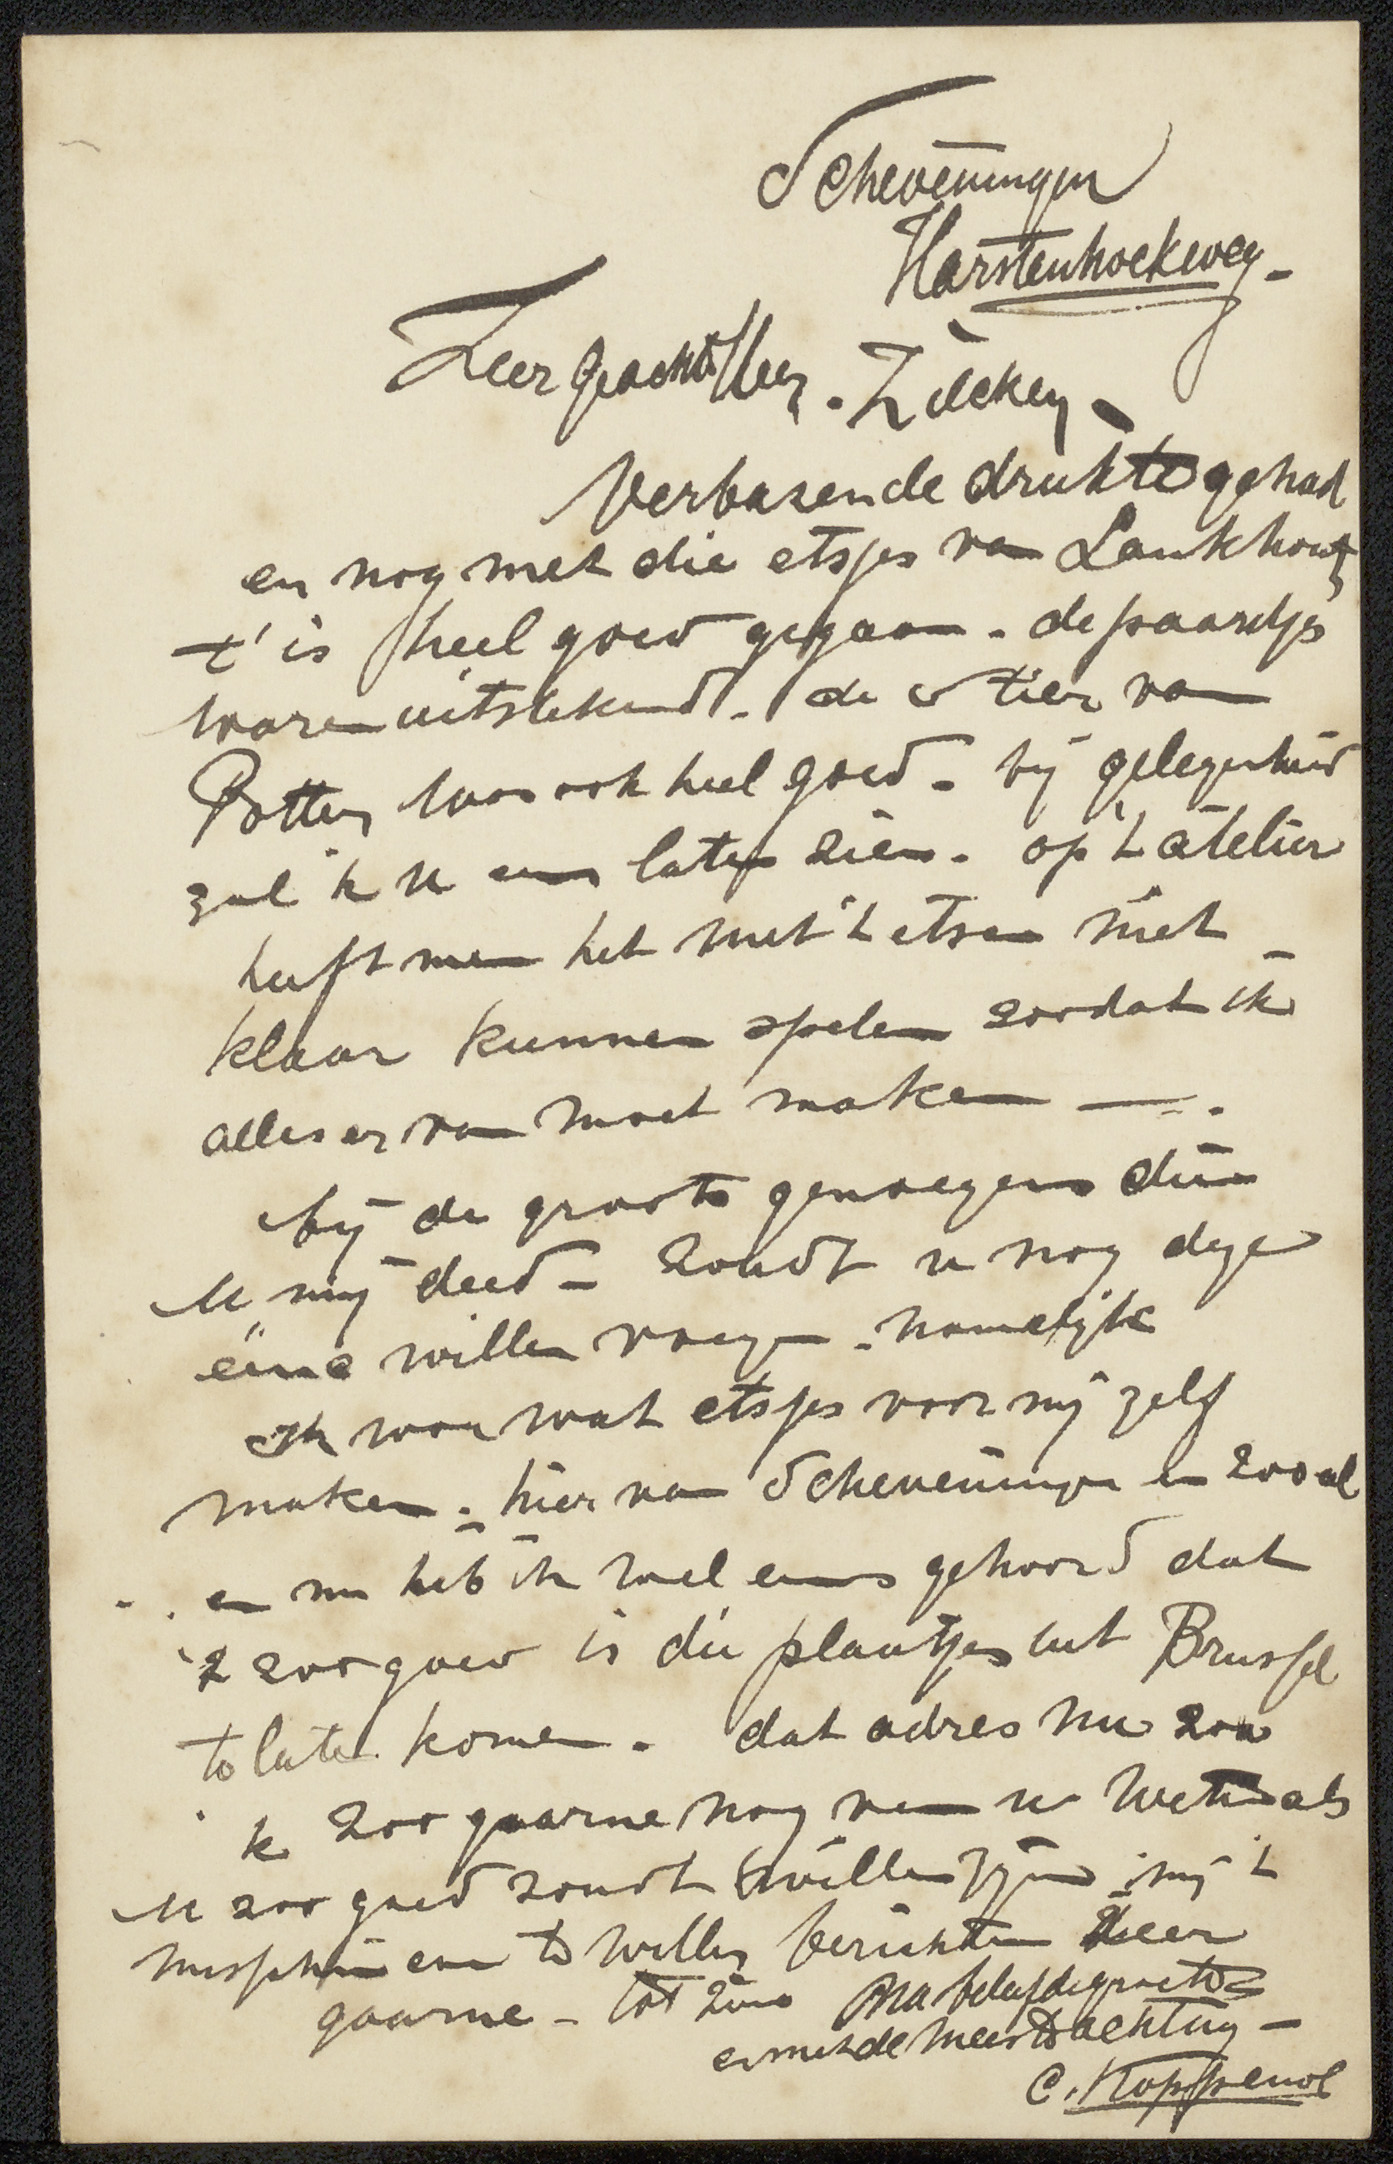 Scheveningen
Harstenhoekweg -
Zeer Geachte Heer. Zilcken -
Verbazende drukte gehad
en nog met die etsjes van Lankhout,
t' is heel goed gegaan - de paardjes
waren uitstekend - de stier van
Potter was ook heel goed - bij gelegenheid
zal ik u eens laten zien. op 't atelier
heeft men het met 't etsen niet
klaar kunnen spelen zoodat ik
alles er van moet maken — .
bij de groote genoegens die
U mij deed - zoudt u nog deze
eene willen voegen - namelijk
ik wou wat etsjes voor mij zelf
maken - hier van Scheveningen en zooal
en nu heb ik wel eens gehoord dat
't zoo goed is die plaatjes uit Brussel
te laten komen. dat adres nu zou
ik zoo gaarne nog van u weten als
U zoo goed zoudt willen zijn mij 't
misschien even te willen berichten zeer
gaarne - tot ziens Na beleefde groete
en met de meeste achting -
C. Koppenol